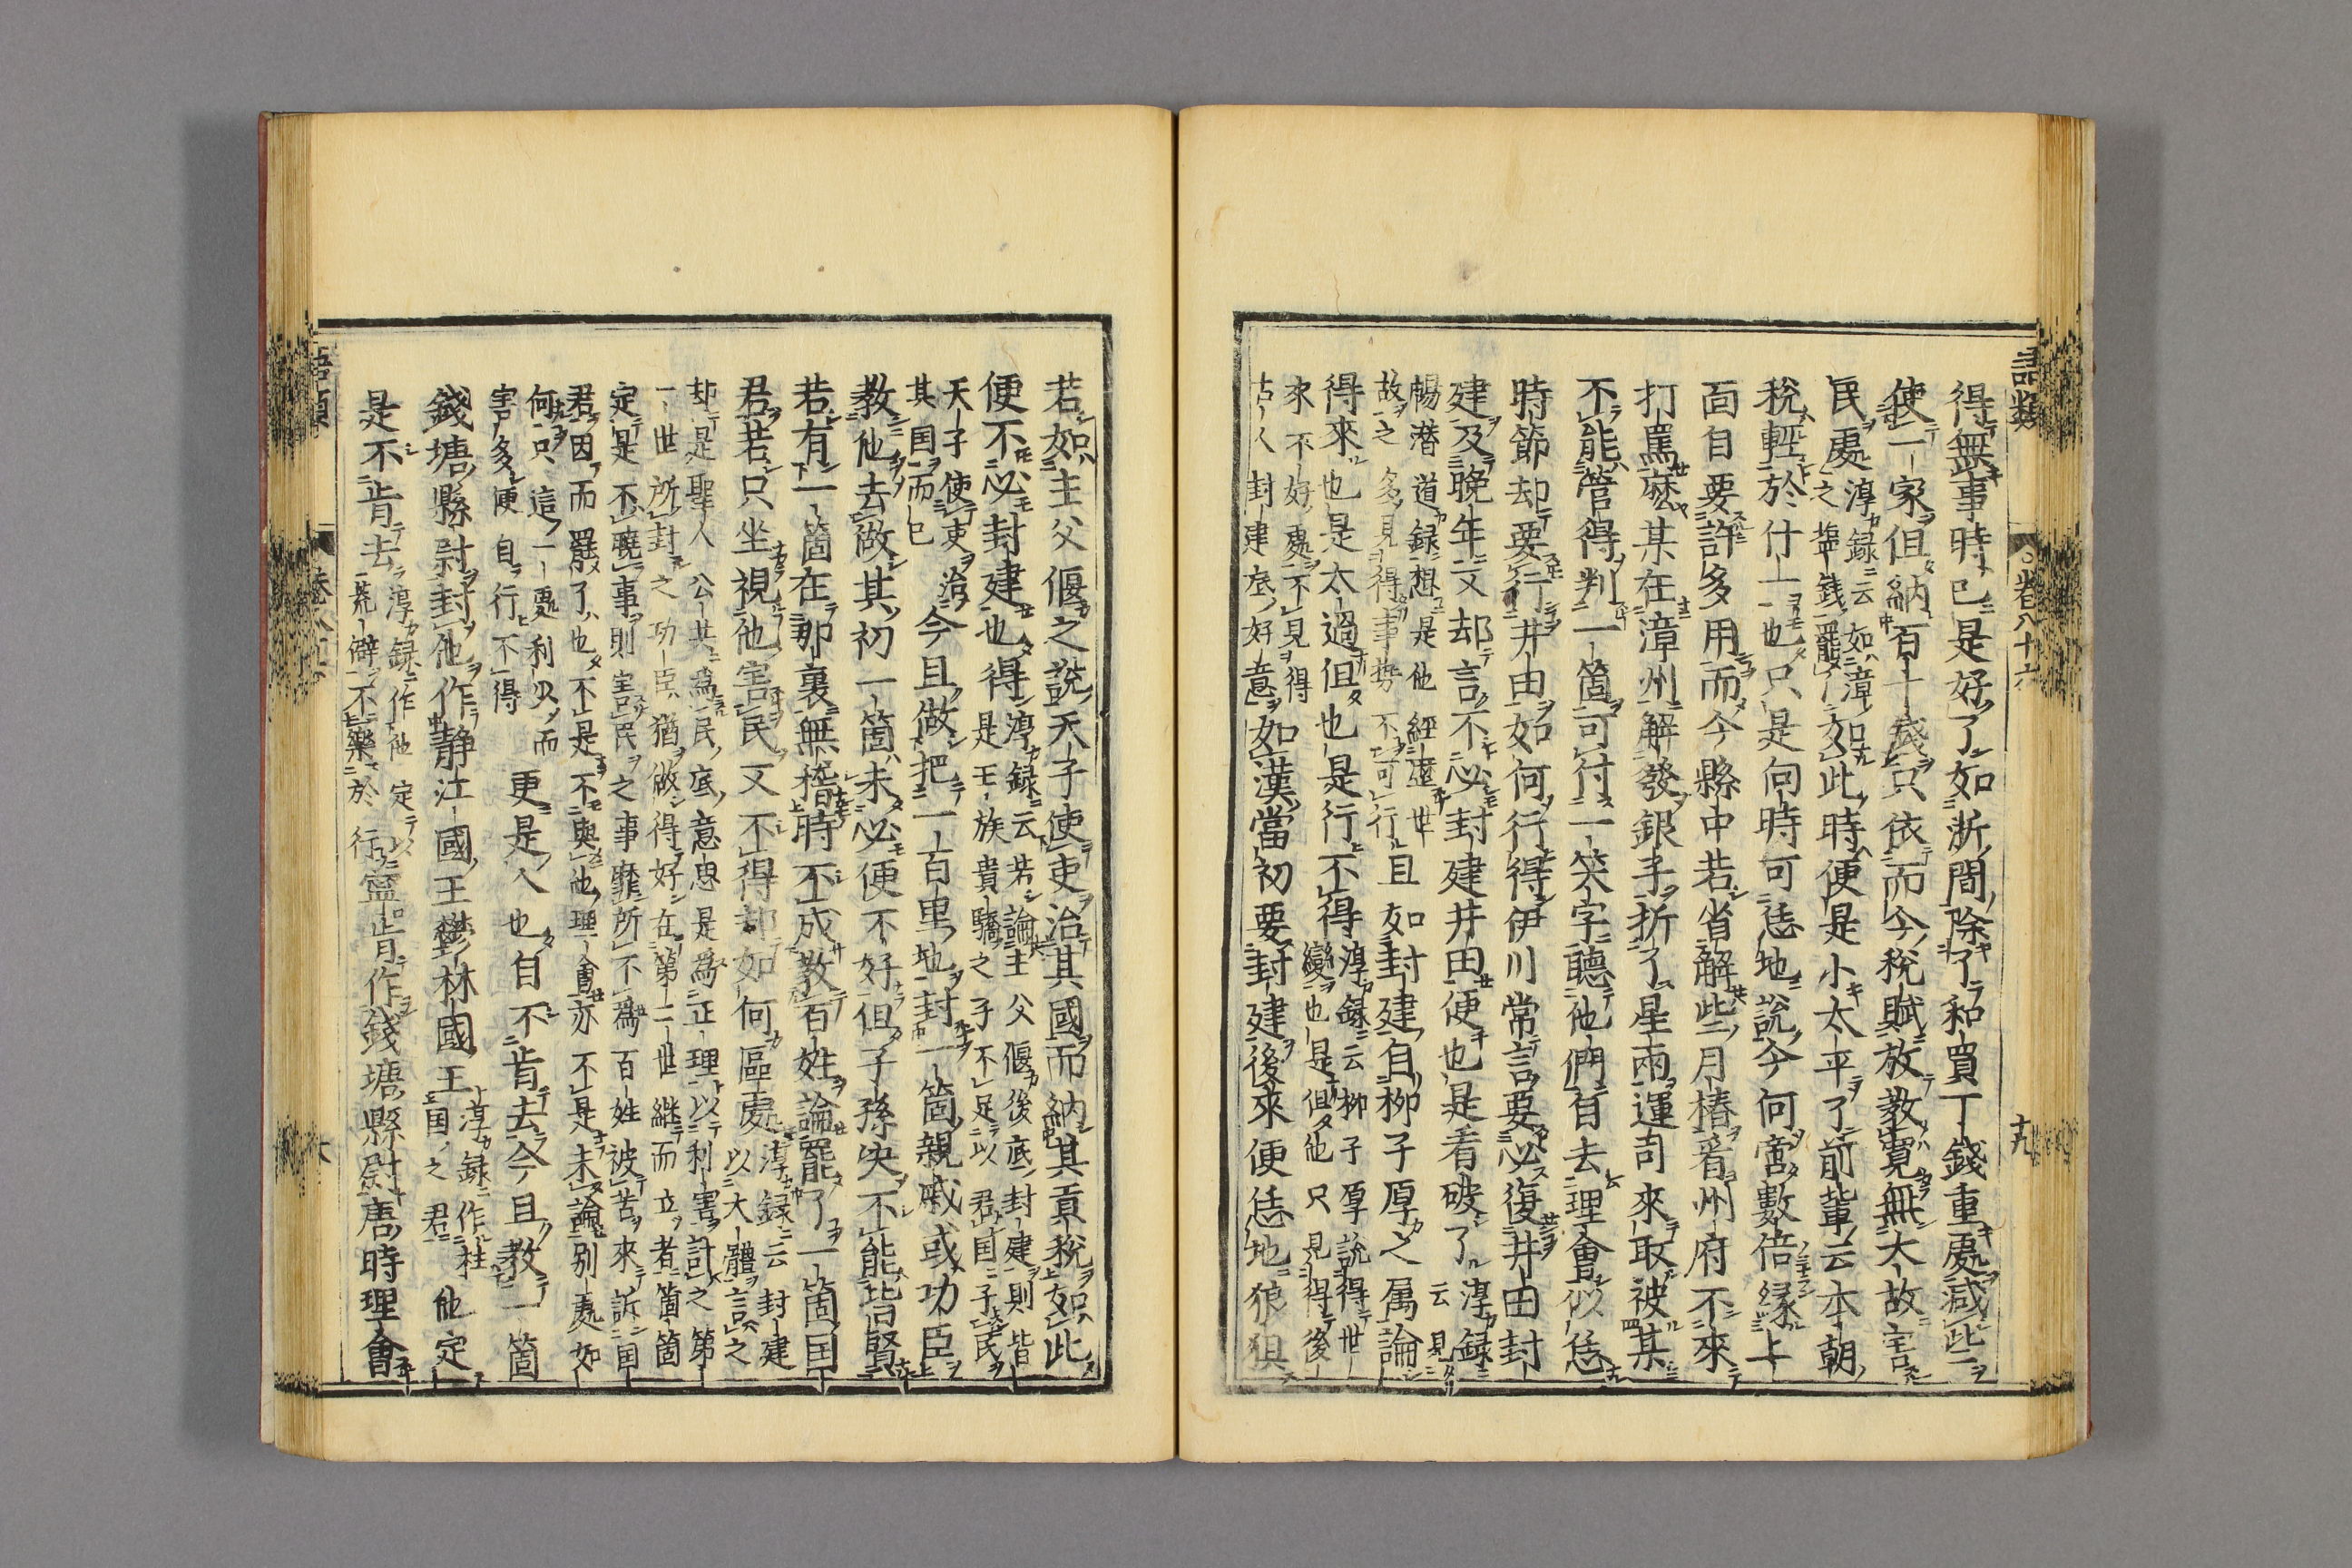 語類
卷八十六
十九
得無事時已是好了如浙間除了和買丁錢重處減些
使一家但納百十錢只依而今稅賦放教寬無大故害
民處淳録云如漳
之鹽錢罷了如此時便是小太平了前輩云本朝
稅輕於什一也只是向時可恁地說今何啻數倍緣上
面自要許多用而今縣中若省解些月樁看州府不來
打罵麽某在漳州解發銀手折了星兩運司來取被某
不能管得判一箇可付一笑字聽他們自去理會似恁
時節却要行井田如何行得伊川常言要必復井田封
建及晚年又却言不必封建井田便也是看破了淳録
云見
暢潛道録想是他經歷世
故之多見得事勢不可行且如封建自柳子厚之属論
得來也是太過但也是行不得淳録云柳子厚說得世
變也是但他只見得後
來不好處不見得
古人封建底好意如漢當初要封建後來便恁地狼狽
若如主父偃之說天子使吏治其國而納其貢稅如此
便不必封建也得淳録云若論主父偃後底封建則皆
是王族貴驕之子不足以君国子民
天子使吏治
其国而已今且做把一百里地封一箇親戚或功臣
教他去做其初一箇未必便不好但子孫決不能皆賢
若有一箇在那裏無稽時不成教百姓論罷了一箇国
君若只坐視他害民又不得却如何區處淳録云封建
以大體言之
却是聖人公共為民底意思是為正理以利害計之第
一世所封之功臣猶做得好在第二世繼而立者箇箇
定是不曉事則害民之事靡所不為百姓被苦來訴国
君因而罷了也不是不與他理會亦不是未論別處如
何只這一處利少而
害多便自行不得更是人也自不肯去今且教一箇
錢塘縣尉封他作静江國王鬱林國王淳録作桂
国之君他定
是不肯去淳録作他定以
荒僻不樂於行寧肯作錢塘縣尉唐時理會
語類